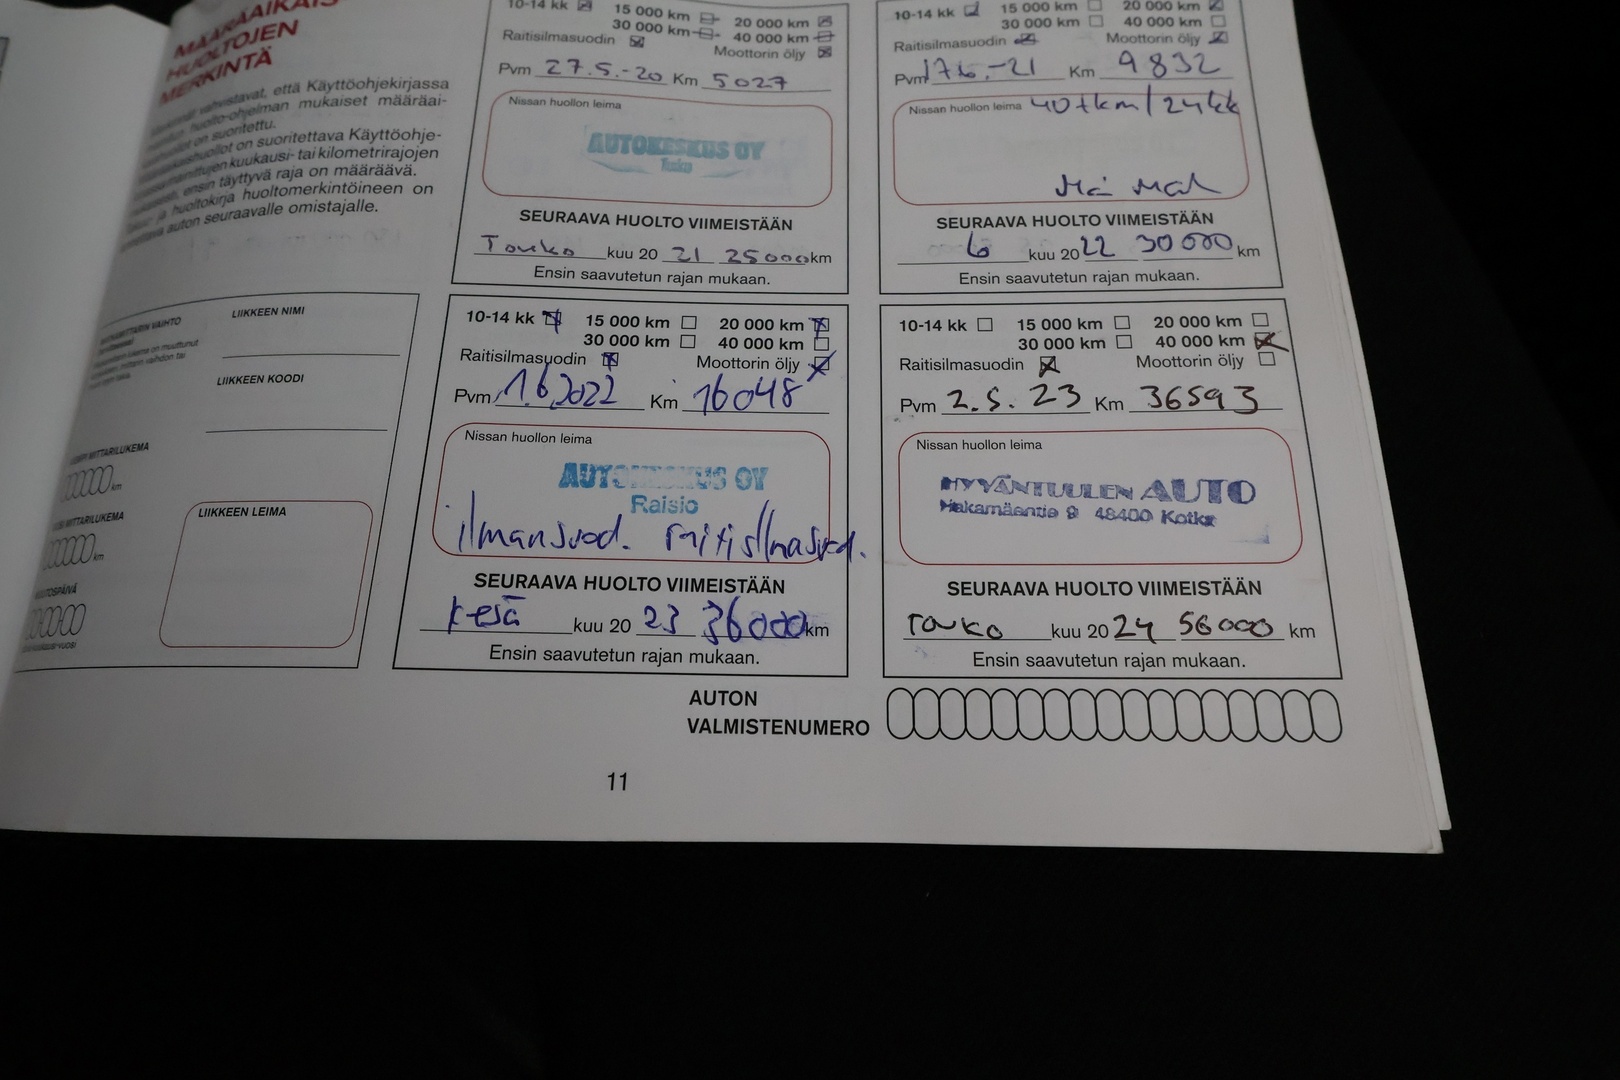 MÄÄRÄAIKAIS
HUOLTOJEN
MERKINTÄ
vahvistavat, että Käyttöohjekirjassa
huolto-ohjelman mukaiset määräai-
on suoritettu.
on suoritettava Käyttöohje-
kuukausi- tai kilometrirajojen
ensin täyttyvä raja on määräävä.
ja huoltokirja huoltomerkintöineen on
auton seuraavalle omistajalle.
10-14 kk 15 000 km 20 000 km
30 000 km 40 000 km
Raitisilmasuodin Moottorin öljy
Pvm 27.5.-20 Km 5027
Nissan huollon leima
AUTOKESKUS OY
SEURAAVA HUOLTO VIIMEISTÄÄN
Touko kuu 20 21 25000 km
Ensin saavutetun rajan mukaan.
10-14 kk 15 000 km 20 000 km
30 000 km 40 000 km
Raitisilmasuodin Moottorin öljy
Pvm 17.6.-21 Km 9832
Nissan huollon leima 40tkm/24kk
SEURAAVA HUOLTO VIIMEISTÄÄN
6 kuu 20 22 30 000 km
Ensin saavutetun rajan mukaan.
VAIHTO
LIIKKEEN NIMI
LIIKKEEN KOODI
MITTARILUKEMA
km
MITTARILUKEMA
km
LIIKKEEN LEIMA
10-14 kk 15 000 km 20 000 km
30 000 km 40 000 km
Raitisilmasuodin Moottorin öljy
Pvm 1.6.2022 Km 16048
Nissan huollon leima
AUTOKESKUS OY
Raisio
ilmansuod. raitisilmasuod.
SEURAAVA HUOLTO VIIMEISTÄÄN
kesä kuu 20 23 36000 km
Ensin saavutetun rajan mukaan.
10-14 kk 15 000 km 20 000 km
30 000 km 40 000 km
Raitisilmasuodin Moottorin öljy
Pvm 2.5.23 Km 36593
Nissan huollon leima
HYVÄNTUULEN AUTO
Hakamäentie 9 48400 Kotka
SEURAAVA HUOLTO VIIMEISTÄÄN
Touko kuu 20 24 56000 km
Ensin saavutetun rajan mukaan.
AUTON
VALMISTENUMERO
11